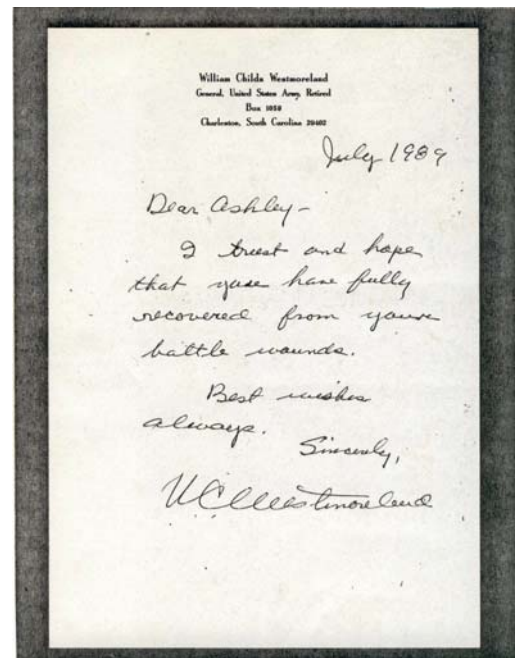 William Childs Westmoreland
General, United States Army, Retired
Box 1059
Charleston, South Carolina 29402
July 1989
Dear Ashley-
I trust and hope
that you have fully
recovered from your
battle wounds.
Best wishes
always.
Sincerely,
WCWestmoreland